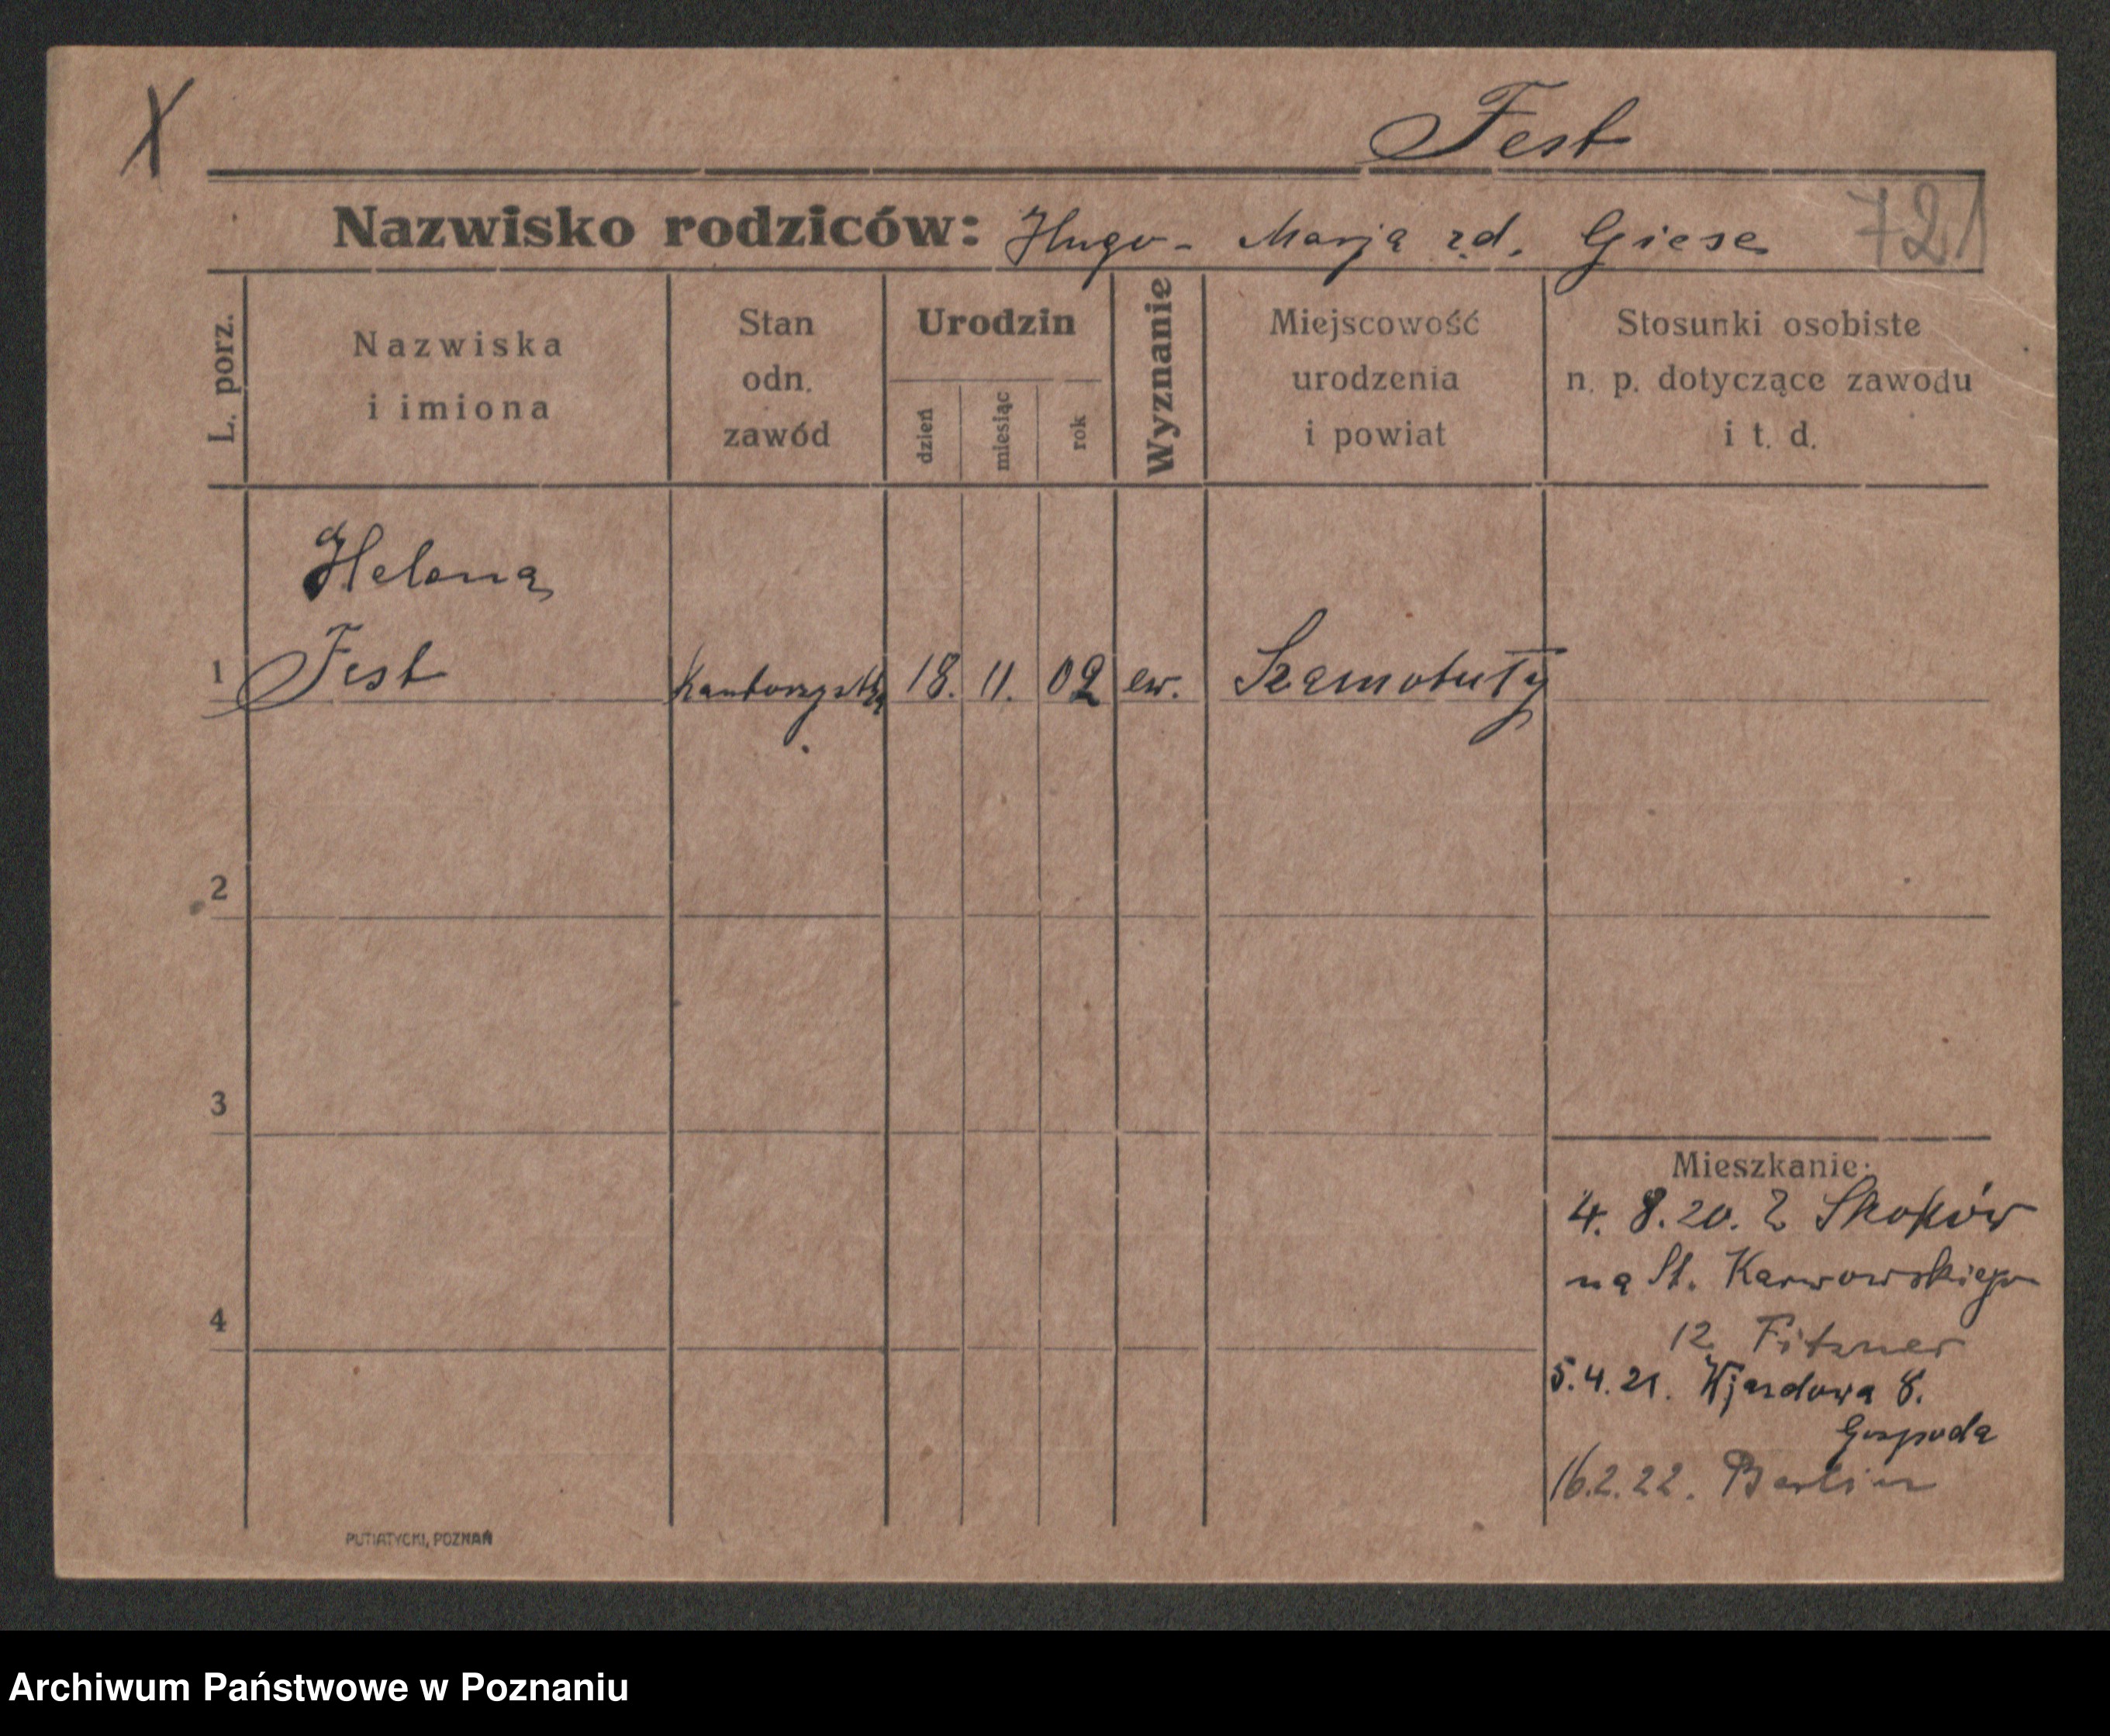 X
Fest
721
Nazwisko rodziców: Hugo - Marja zd. Giese
L. porz.
Nazwiska
i imiona
Stan
odn.
zawód
Urodzin
dzień
miesiąc
rok
Wyznanie
Miejscowość
urodzenia
i powiat
Stosunki osobiste
n. p. dotyczące zawodu
i t. d.
Helena
1 Fest kantorzystka 18. 11. 02 ew. Szamotuły
2
3
4
Mieszkanie:
4. 8. 20. z Skoków
na St. Karwowskiego
12 Fitzner
5.4.21. Wjazdowa 8.
Gospoda
16.2.22. Berlin
PUTIATYCKI, POZNAŃ
Archiwum Państwowe w Poznaniu